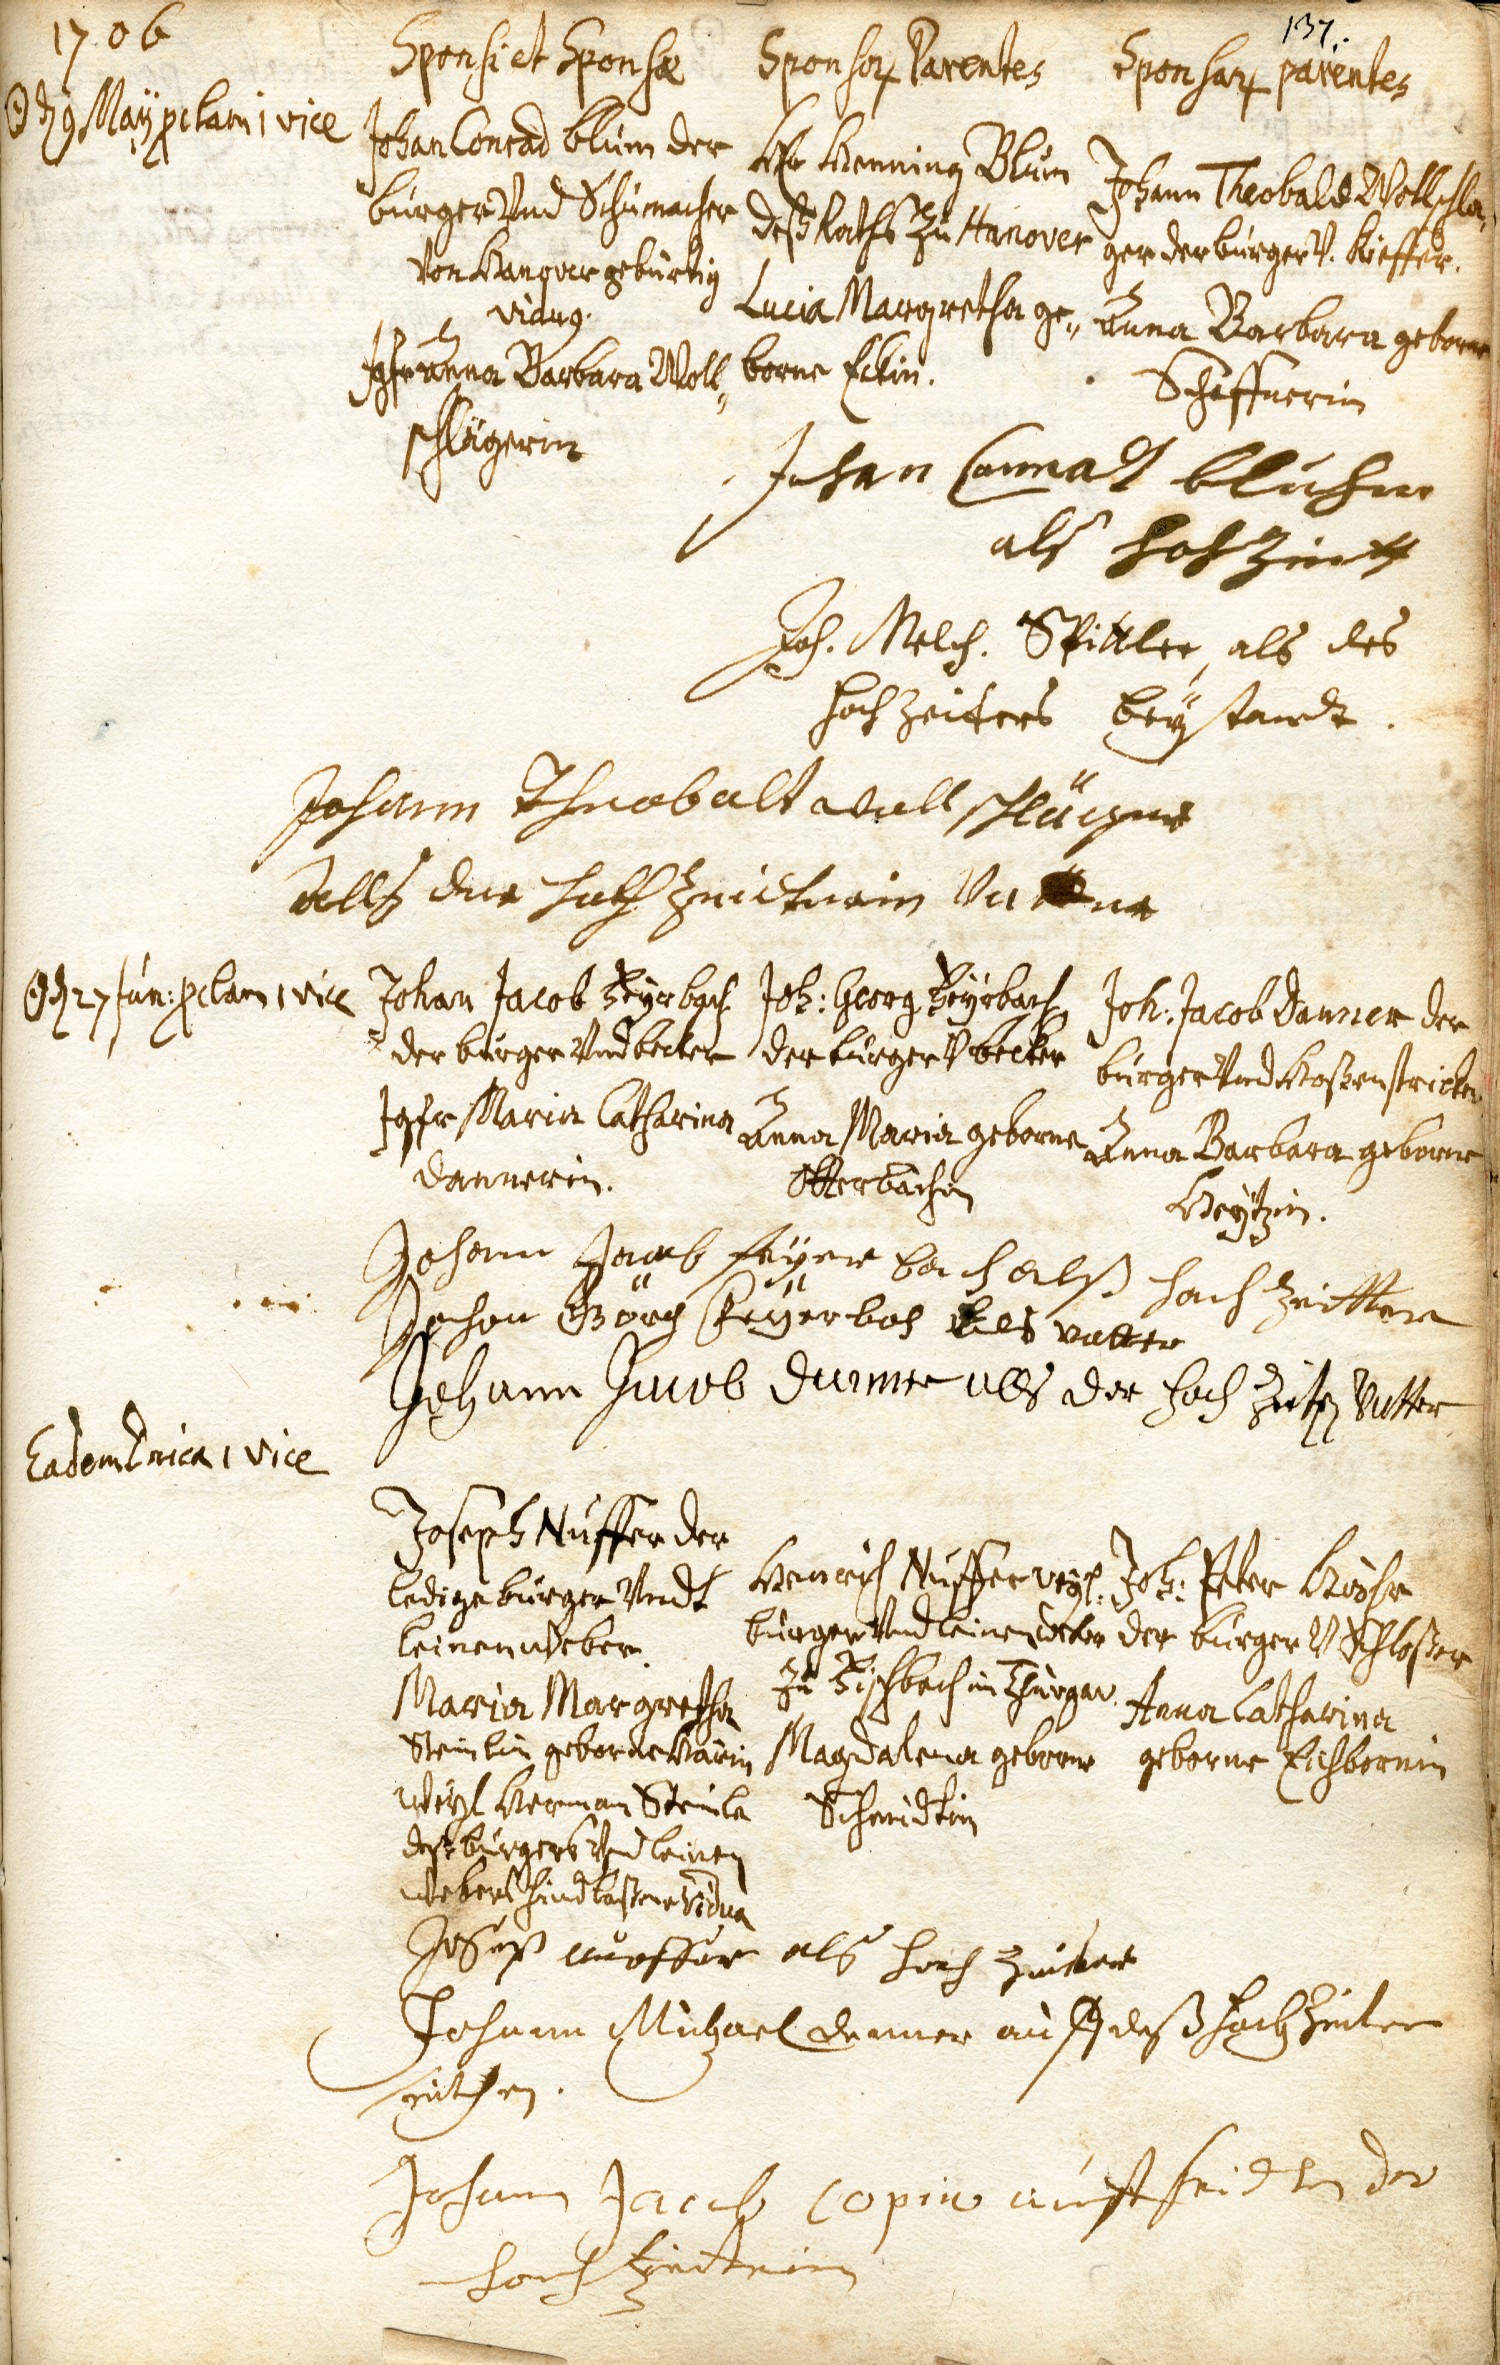 1706
137.
Sponsi et Sponsæ
Sponsor. Parentes
Sponsar. parentes
d. 9 Maÿ proclam 1 vice
Johan Conrad Blum der
burger Vnd Schumacher
von Hanover gebürtig
vidug.
Jgfr Anna Barbara Woll„
schlägerin
Hr Henning Blum
deß Raths zu Hanover
Lucia Margretha ge„
borne Eckin.
Johann Theobald Wollschla„
ger der burger V. Kieffer.
Anna Barbara geborne
Schäffnerin
Johan Connradt bluhme
als hochzeiter
Joh. Melch. Spittler, als des
hochzeiters beÿstandt.
Johann Theobalt wollschläger
alls der hochzeiterin Vatter
d. 27 Jun: proclam 1 vice
Johan Jacob Feÿrbach
der burger Vnd becker
Jgfr Maria Catharina
dannerin.
Joh: Georg Feÿrbach
der burger V becker
Anna Maria geborne
Otterbächin
Joh: Jacob Danner der
burger Vnd Hoßenstricker
Anna Barbara geborne
Heÿtzin.
Johann Jacob feÿerbach alß hochzeitter
Johan Görg Feÿerbach als vatter
Johann Jacob danner alls der hoch Vatter
Eadem Dnica 1 vice
Joseph Nuffer der
ledige burger Vndt
leinenweber.
Maria Margretha
Steinlin geborne
weÿl Herman Steinle
deß burgers Vnd leinen
webers hindlaßene Vidua
Henrich Nuffer weÿl.
burger Vnd leinenweber
zu Fischbach im Thurgau
Magdalena geborne
Schmidtin
Joh: Peter
der burger V Schloßer
Anna Catharina
geborne Eichbornin
als hochzeiter
Johann Michael danner auff deß hochzeiter
seithen.
Johann Jacob Copin auff seidten der
hochtzeiterin